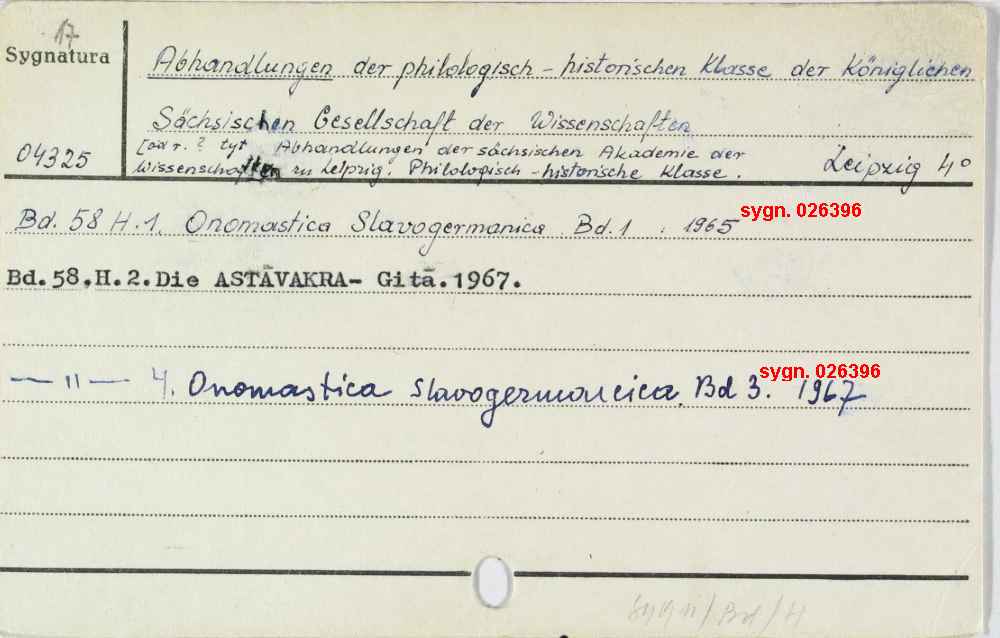 17
Sygnatura
04325
Abhandlungen der philologisch-historischen Klasse der Königlichen
Sächsischen Gesellschaft der Wissenschaften
[od r. ? tyt Abhandlungen der sächsischen Akademie der
Wissenschaften zu Leipzig. Philologisch-historische Klasse.
Leipzig 4°
Bd. 58 H.1. Onomastica Slavogermanica Bd.1 . 1965 sygn. 026396
Bd.58.H.2.Die ASTĀVAKRA- Gitā.1967.
— " — 4. Onomastica Slavogermanica. Bd 3. 1967 sygn. 026396
Sygn/Bd/H